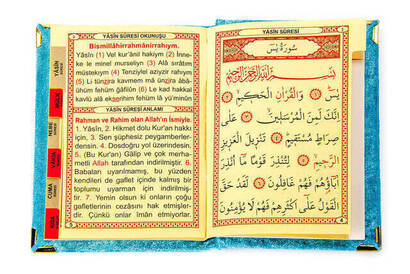 YÂSİN SÛRESİ OKUNUŞU
Bismillâhirrahmânirrahıym.
Yâsîn (1) Vel kur'ânil hakiym (2) İnne-
ke le minel murseliyn (3) Alâ sırâtım
müstekıym (4) Tenziylel aziyzir rahıym
(5) Li tünzira kavmem mâ ünzira âbâ-
ühüm fehüm ğâfilûn (6) Le kad hakkal
kavlü alâ ekserihim fehüm lâ yü'minûn
YÂSÎN SÛRESİ ANLAMI
Rahman ve Rahim olan Allah'ın İsmiyle.
1. Yâsîn, 2. Hikmet dolu Kur'an hakkı
için, 3. Sen şüphesiz peygamberler-
densin. 4. Dosdoğru yol üzerindesin.
5. (Bu Kur'an) Gâlip ve çok merha-
metli Allah tarafından indirilmiştir. 6.
Babaları uyarılmamış, bu yüzden
kendileri de gaflet içinde kalmış bir
toplumu uyarman için indirilmiş-
tir. 7. Yemin olsun ki onların çoğu
gafletlerinin cezasını hak etmişler-
dir. Çünkü onlar iman etmiyorlar.
YÂSİN
MÜLK
NEBE
CUMA
KISA
YÂSİN SÛRESİ
سُورَةُ يٰسٓ
بِسْمِ اللّٰهِ الرَّحْمٰنِ الرَّحِيمِ
يٰسٓ ﴿١﴾ وَالْقُرْاٰنِ الْحَكِيمِ ﴿٢﴾
اِنَّكَ لَمِنَ الْمُرْسَلِينَ ﴿٣﴾ عَلٰى
صِرَاطٍ مُسْتَقِيمٍ ﴿٤﴾ تَنْزِيلَ الْعَزِيزِ
الرَّحِيمِ ﴿٥﴾ لِتُنْذِرَ قَوْمًا مَٓا اُنْذِرَ
اٰبَٓاؤُ۬هُمْ فَهُمْ غَافِلُونَ ﴿٦﴾ لَقَدْ حَقَّ
الْقَوْلُ عَلٰٓى اَكْثَرِهِمْ فَهُمْ لَا يُؤْمِنُونَ